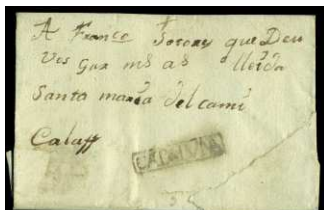 A Franco que Deu
Vos Gar ms as lleida
Santa maria del cami
Calaff
CATALUÑA